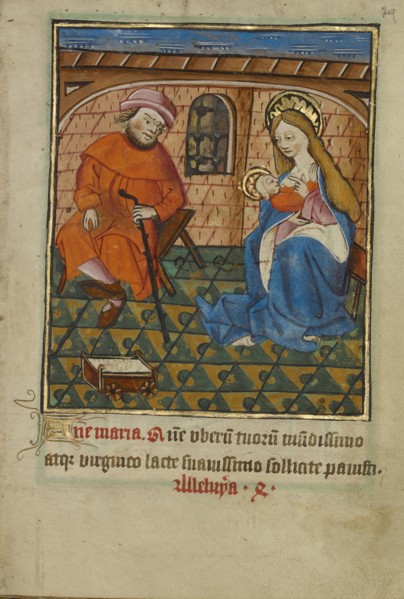 Aue maria. Quē vberū tuorū mūdissimo
atqꝫ virgineo lacte suauissimo sollicite pauisti.
Alleluya · ⁊ ·